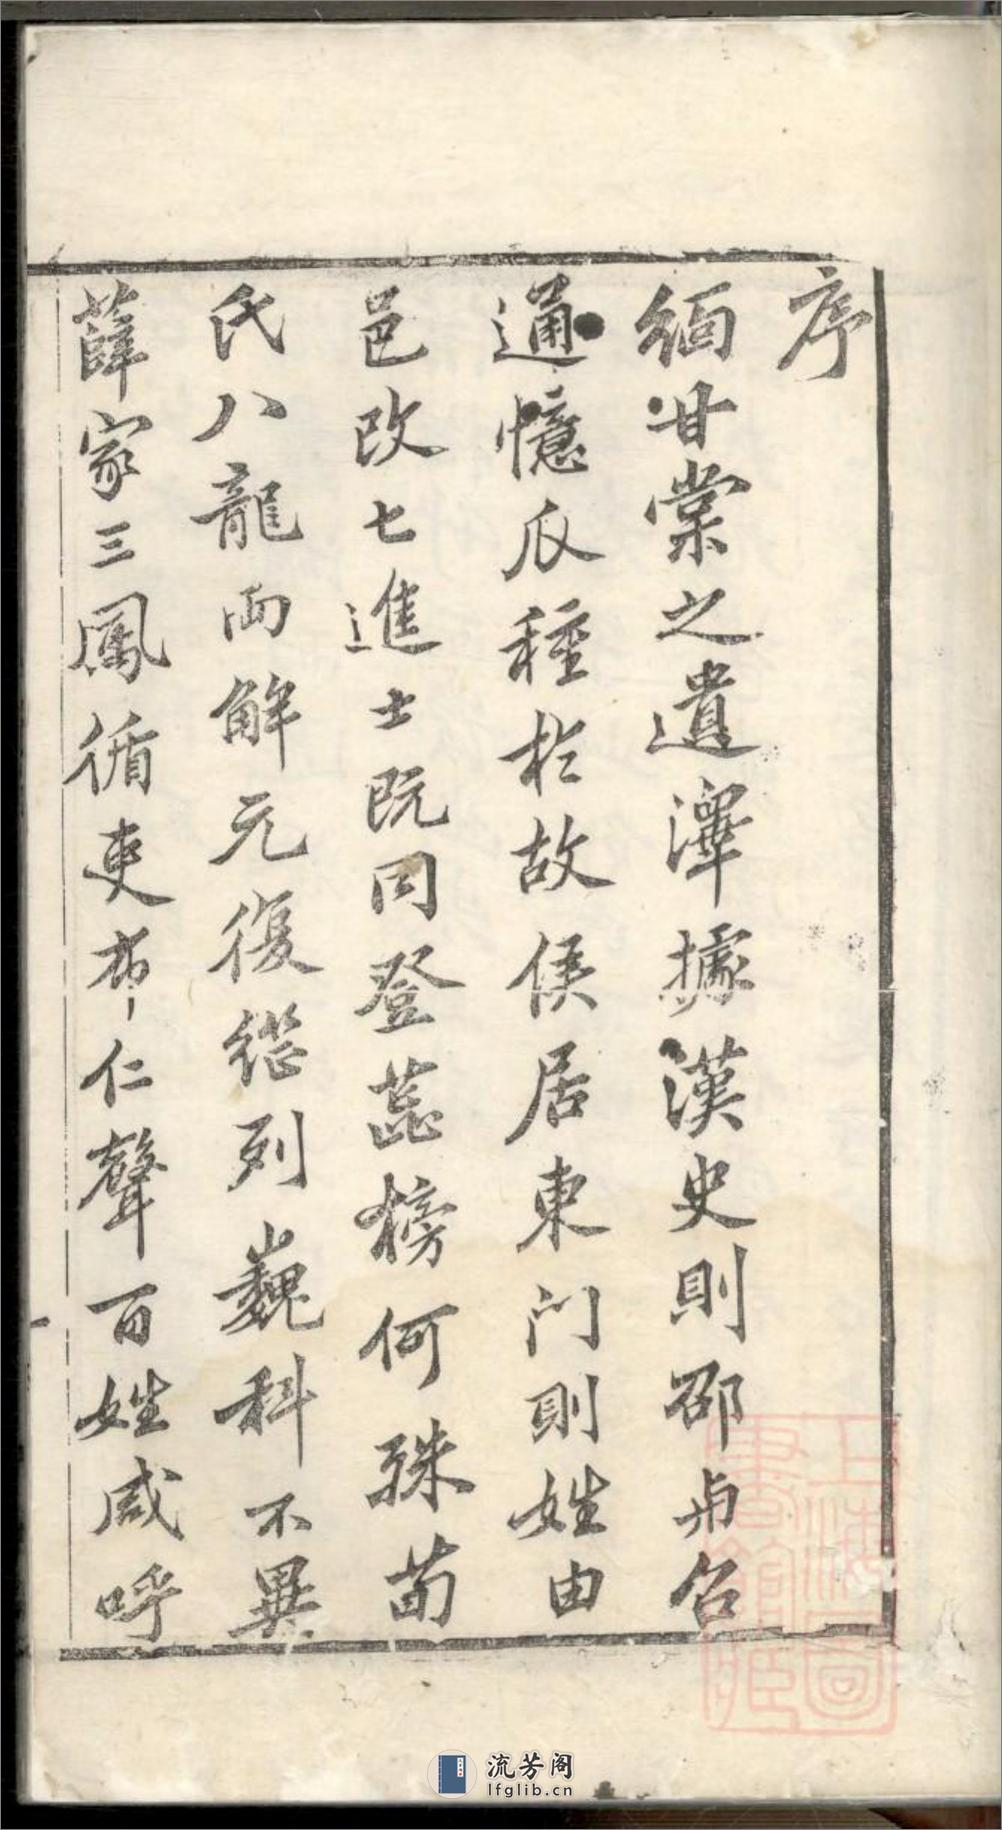 序
緬甘棠之遺澤據漢史則邵与召
通憶瓜種於故侯居東门則姓由
邑改七進士既同登蕊榜何殊荀
氏八龍兩解元復從列巍科不異
薛家三鳳循吏布仁聲百姓咸呼
上海圖書館藏
流芳阁
lfglib.cn